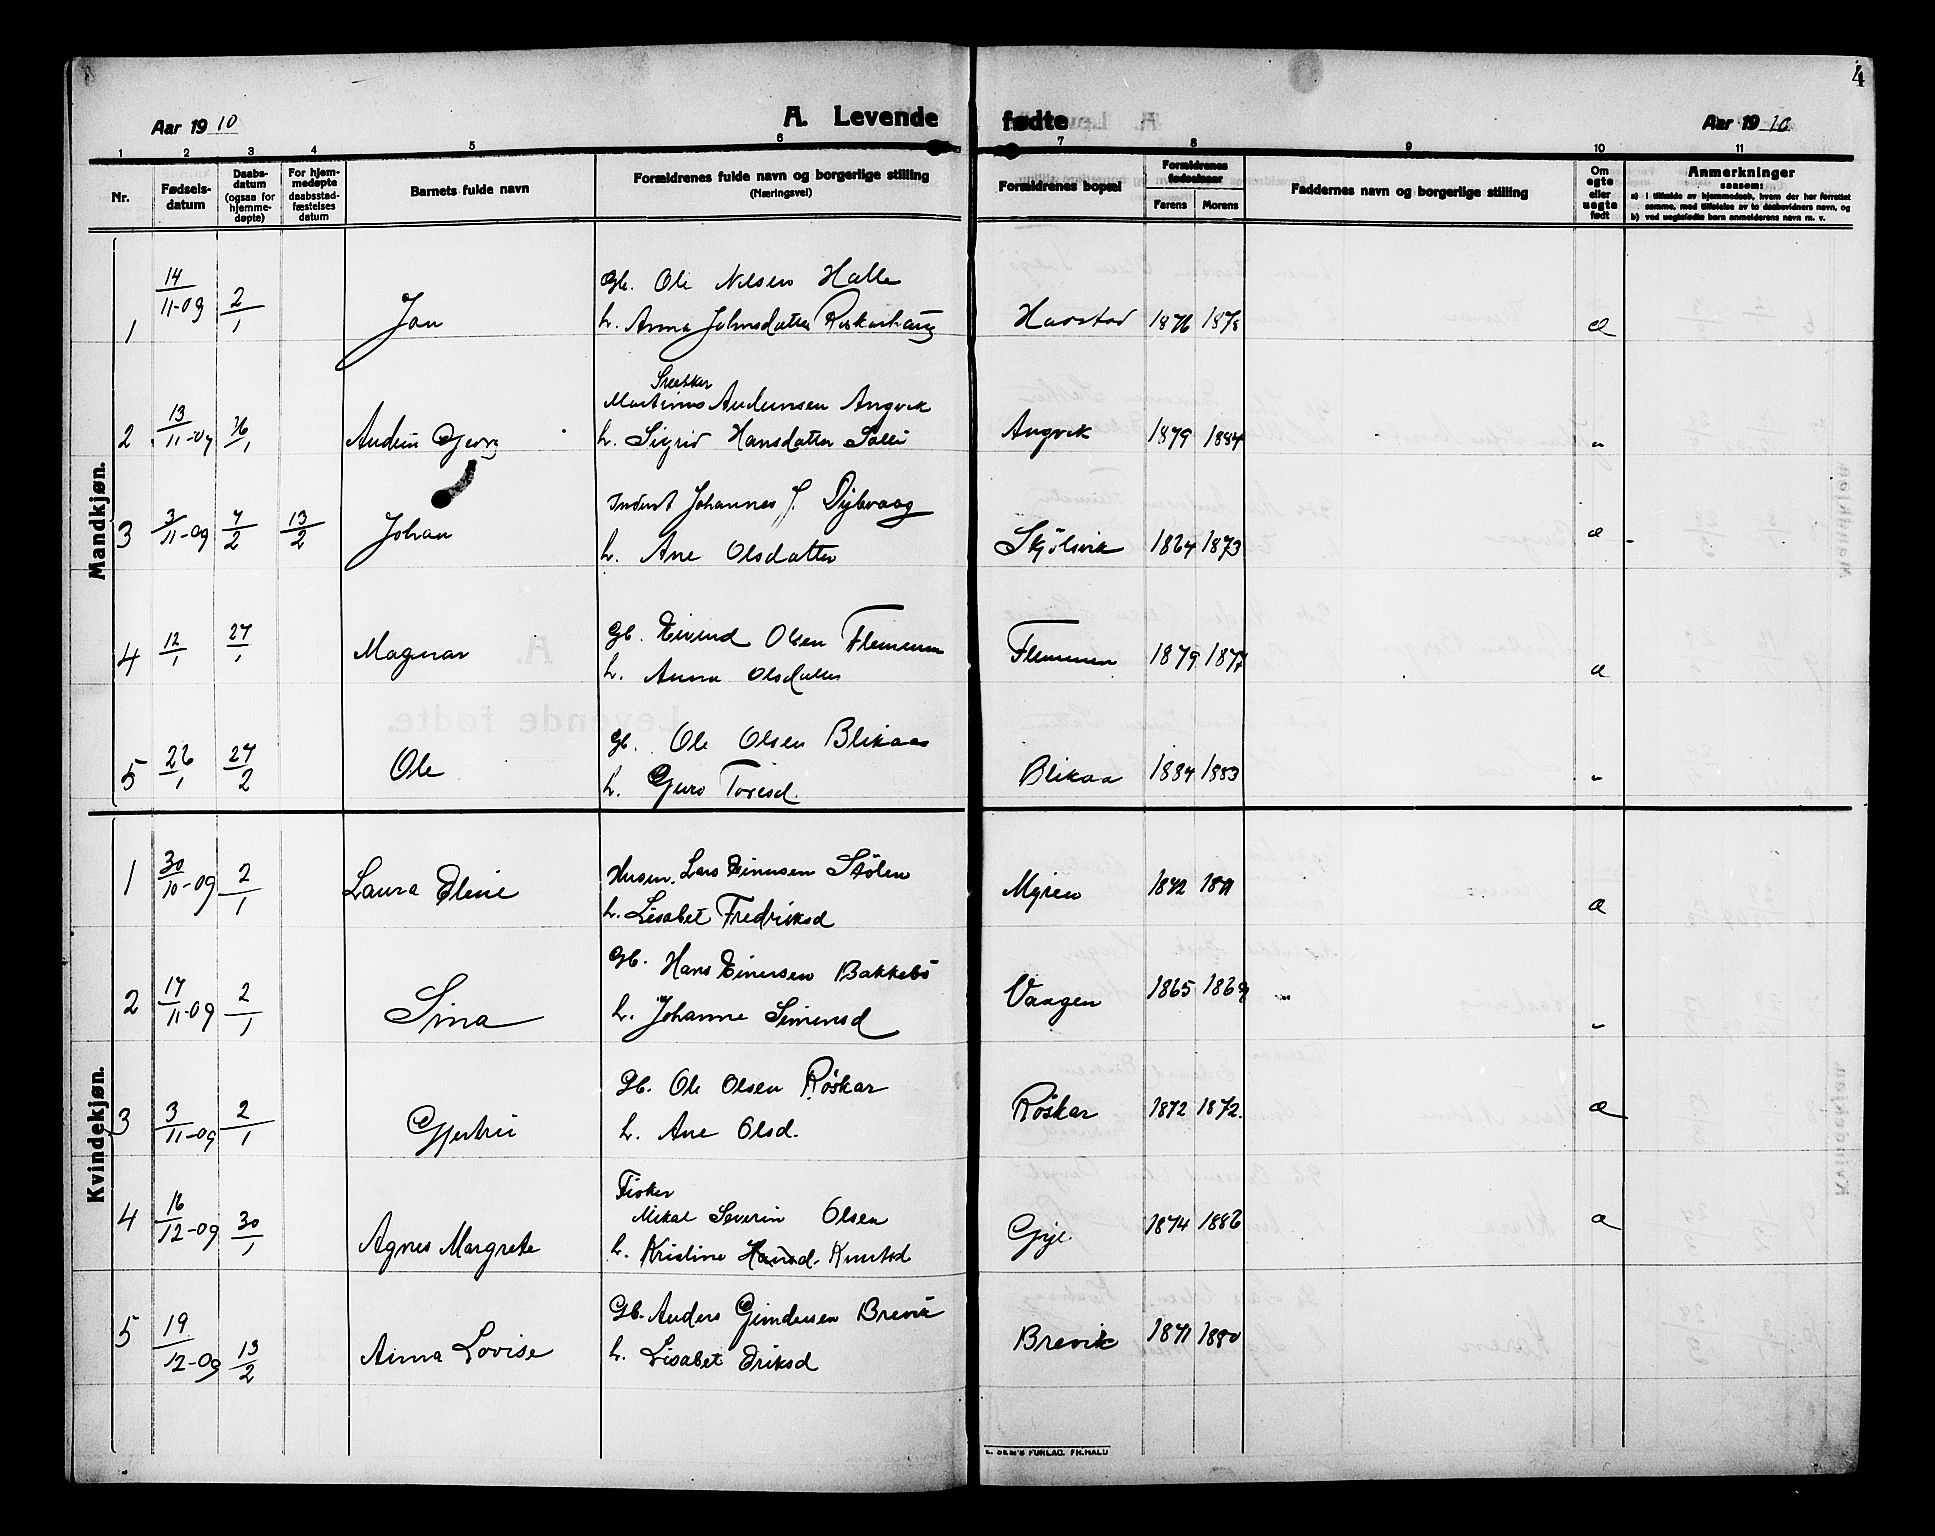 4
Aar 1910
A. Levende fødte
Aar 1910
1 2 3 4 5 6 7 8 9 10 11
Nr.
Fødsels-
datum
Daabs-
datum
(ogsaa for
hjemme-
døpte)
For hjem-
medøpte
daabsstad-
fæstelses
datum
Barnets fulde navn
Forældrenes fulde navn og borgerlige stilling
(Næringsvei)
Forældrenes bopæl
Forældrenes
fødselsaar
Farens Morens
Faddernes navn og borgerlige stilling
Om
egte
eller
uegte
født
Anmerkninger
saasom:
a) i tilfælde av hjemmedaab, hvem der har forrettet
samme, med tilføielse av to daabsvidners navn, og
b) ved uegtefødte barn anmelderens navn m. v.
Mandkjøn.
14/11-09 Gb. Ole Nilsen Halle
1 2/1 Jon h. Anna Johnsdatter Harstad 1876 1878 æ
Snedker
13/11-09 Martinus Audunsen Angvik
2 16/1 Audun Georg h. Sigrid Hansdatter Solli Angvik 1879 1884 "
3/11-09 Inderst Johannes J. Dybvaag
3 7/2 13/2 Johan h. Ane Olsdatter Skjølsvik 1864 1873 æ
Gb. Eivind Olsen Flemmen
4 12/1 27/1 Magnar h. Anna Olsdatter Flemmen 1879 1877 æ
Gb. Ole Olsen Blikaas
5 26/1 27/2 Ole h. Guro Toresd. Blikaa 1884 1883 "
Kvindekjøn.
Husm. Lars Einersen Stølen
1 30/10-09 2/1 Laura Eline h. Lisabet Fredriksd Myren 1872 1871 æ
Gb. Hans Einersen Bakkebø
2 17/11-09 2/1 Sina h. Johanne Simensd Vaagen 1865 1869 "
Gb. Ole Olsen Røskar
3 3/11-09 2/1 Gjertrui h. Ane Olsd. Røskar 1872 1872. æ
Fisker
Mikal Severin Olsen
4 16/12-09 30/1 Agnes Margrete h. Kristine Hansd. Knutsd Gjje. 1874 1886 æ
Gb. Anders Gundersen Brevik
5 19/12-09 13/2 Anna Lovise h. Lisabet Eriksd Brevik 1871 1880